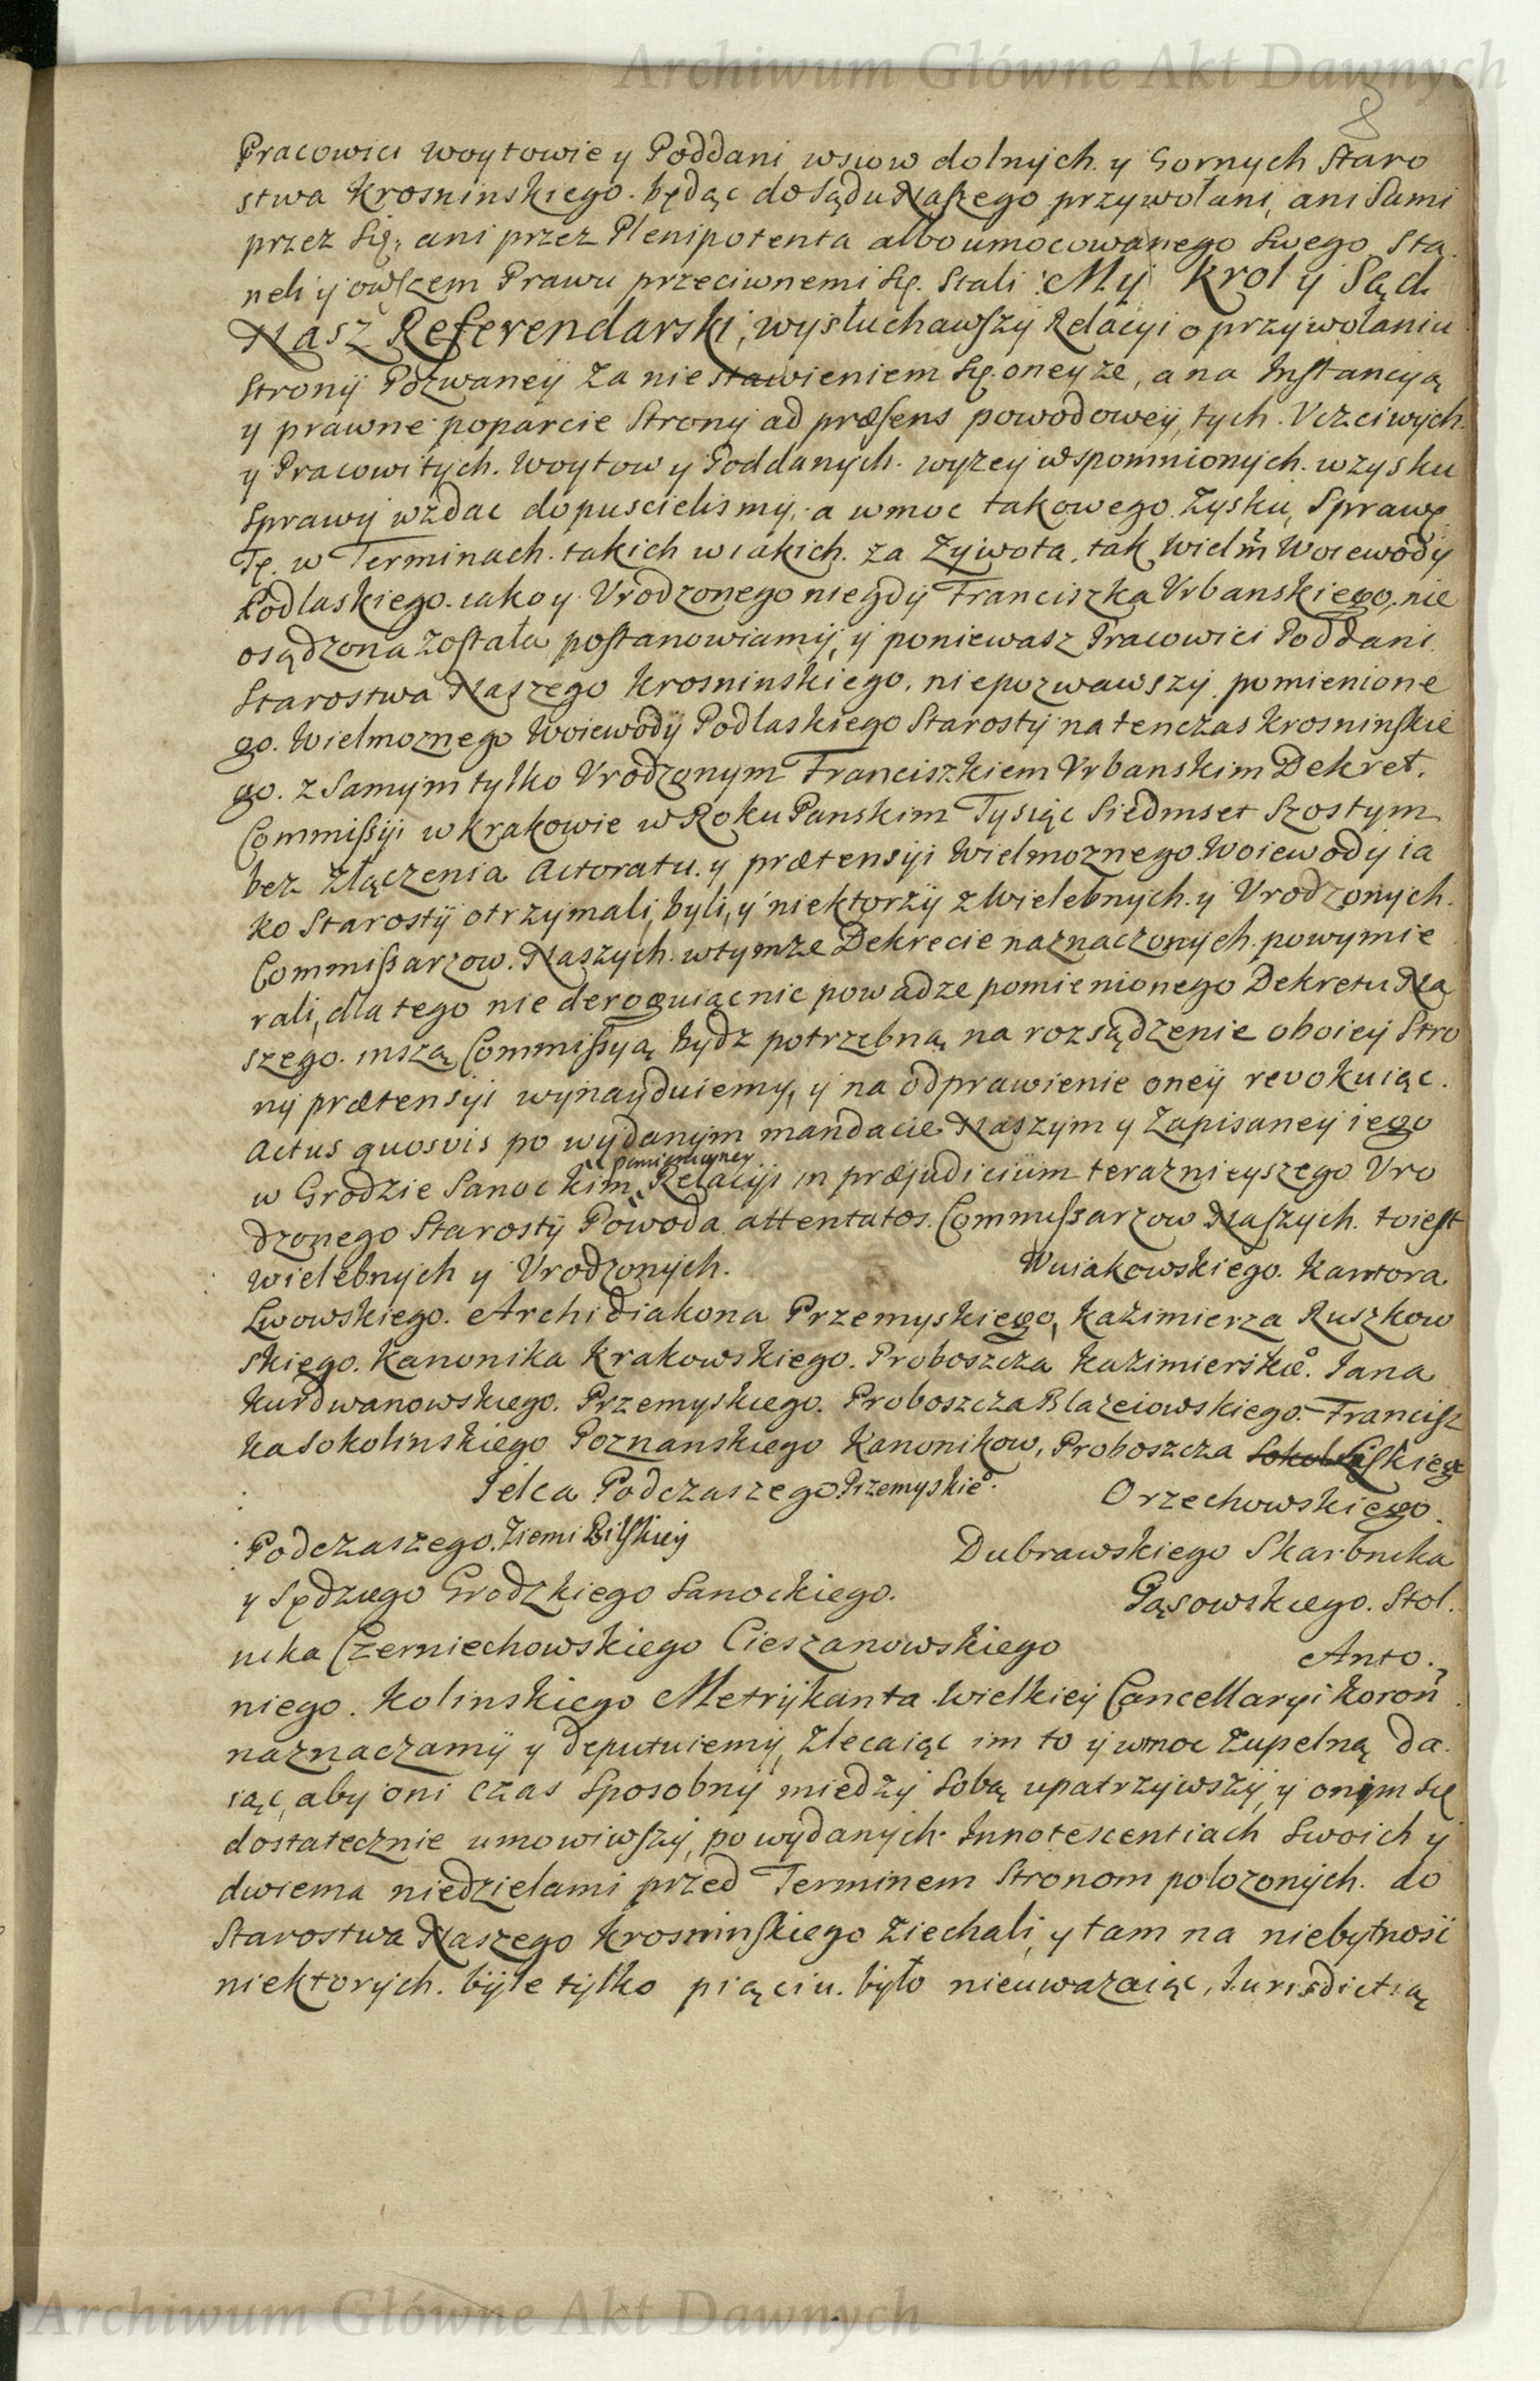 Archiwum Główne Akt Dawnych
8
Pracowici Woytowie y Poddani wsiow dolnych. y Gornych Staro
stwa Krosninskiego. będąc do Sądu Naszego przywołani, ani Sami
przez Się, ani przez Plenipotenta albo umocowanego Swego Sta
neli y owszem Prawu przeciwnemi Się. Stali: My Krol y Sąd.
Nasz Referendarski, wysłuchawszy Relacyi o przywołaniu
Strony Pozwaney Za nie stawieniem Się. oneyze, a na Instancyą
y prawne poparcie Strony ad præsens powodowey, tych. Vczciwych.
y Pracowitych. Woytow y Poddanych. wyzey wspomnionych. w zysku
Sprawy wzdac dopuscielismy, a wmoc takowego Zysku, Sprawę
Tę. w Terminach. takich w iakich. za Zywota. tak Wielm Woiewody
Podlaskiego. iako y Vrodzonego niegdy Franciszka Vrbanskiego, nie
osądzona Została postanowiamy, y poniewasz Pracowici Poddani
Starostwa Naszego Krosninskiego, niepozwawszy pomienione
go. Wielmoznego Woiewody Podlaskiego Starosty na tenczas Krosninskie
go. z Samym tylko Vrodzonym Franciszkiem Vrbanskim Dekret.
Commissyi w Krakowie w Roku Panskim Tysiąc Siedmset Szostym
bez Złączenia Actoratu. y prætensyi Wielmoznego Woiewody ia
ko Starosty otrzymali, byli, y niektorzy z Wielebnych. y Vrodzonych.
Commissarzow. Naszych. wtymze Dekrecie naznaczonych. powymie
rali, dla tego nie deroguiąc nic powadze pomienionego Dekretu Na
szego. inszą Commissyą bydz potrzebną na rozsądzenie oboiey Stro
ny prætensyi wynayduiemy, y na odprawienie oney revokuiąc.
Actus quosvis po wydanym mandacie Naszym y Zapisaney iego
pomienioney
w Grodzie Sanockim Relacyi in præjudicium teraznieyszego Vro
dzonego Starosty Powoda attentatos. Commissarzow Naszych. toiest
wielebnych y Vrodzonych. Wuiakowskiego. Kantora
Lwowskiego. Archidiakona Przemyskiego, Kazimierza Ruszkow
skiego. Kanonika Krakowskiego. Proboszcza Kazimierskieo. Jana
Kurdwanowskiego. Przemyskiego. Proboszcza Blazeiowskiego. Francisz
ka Sokolinskiego Poznanskiego Kanonikow, Proboszcza Liskiego
Jelca Podczaszego Przemyskieo. Orzechowskiego.
Podczaszego. Ziemi Bilskiey Dubrawskiego Skarbnika
y Sędziego Grodzkiego Sanockiego. Pąsowskiego. Stol.
nika Czerniechowskiego Cieszanowskiego Anto.
niego. Kolinskiego Metrykanta Wielkiey Cancellaryi Koron
naznaczamy y deputuiemy, Zlecaiąc im to y wmoc Zupełną da.
iąc, aby oni czas Sposobny miedzy Sobą upatrzywszy, y onym Się
dostatecznie umowiwszy, po wydanych. Innotescentiach Swoich y
dwiema niedzielami przed Terminem Stronom polozonych. do
Starostwa Naszego Krosninskiego Ziechali, y tam na niebytnosć
niektorych. byle tylko pięciu. było nieuwazaiąc, Jurisdictią
Archiwum Główne Akt Dawnych